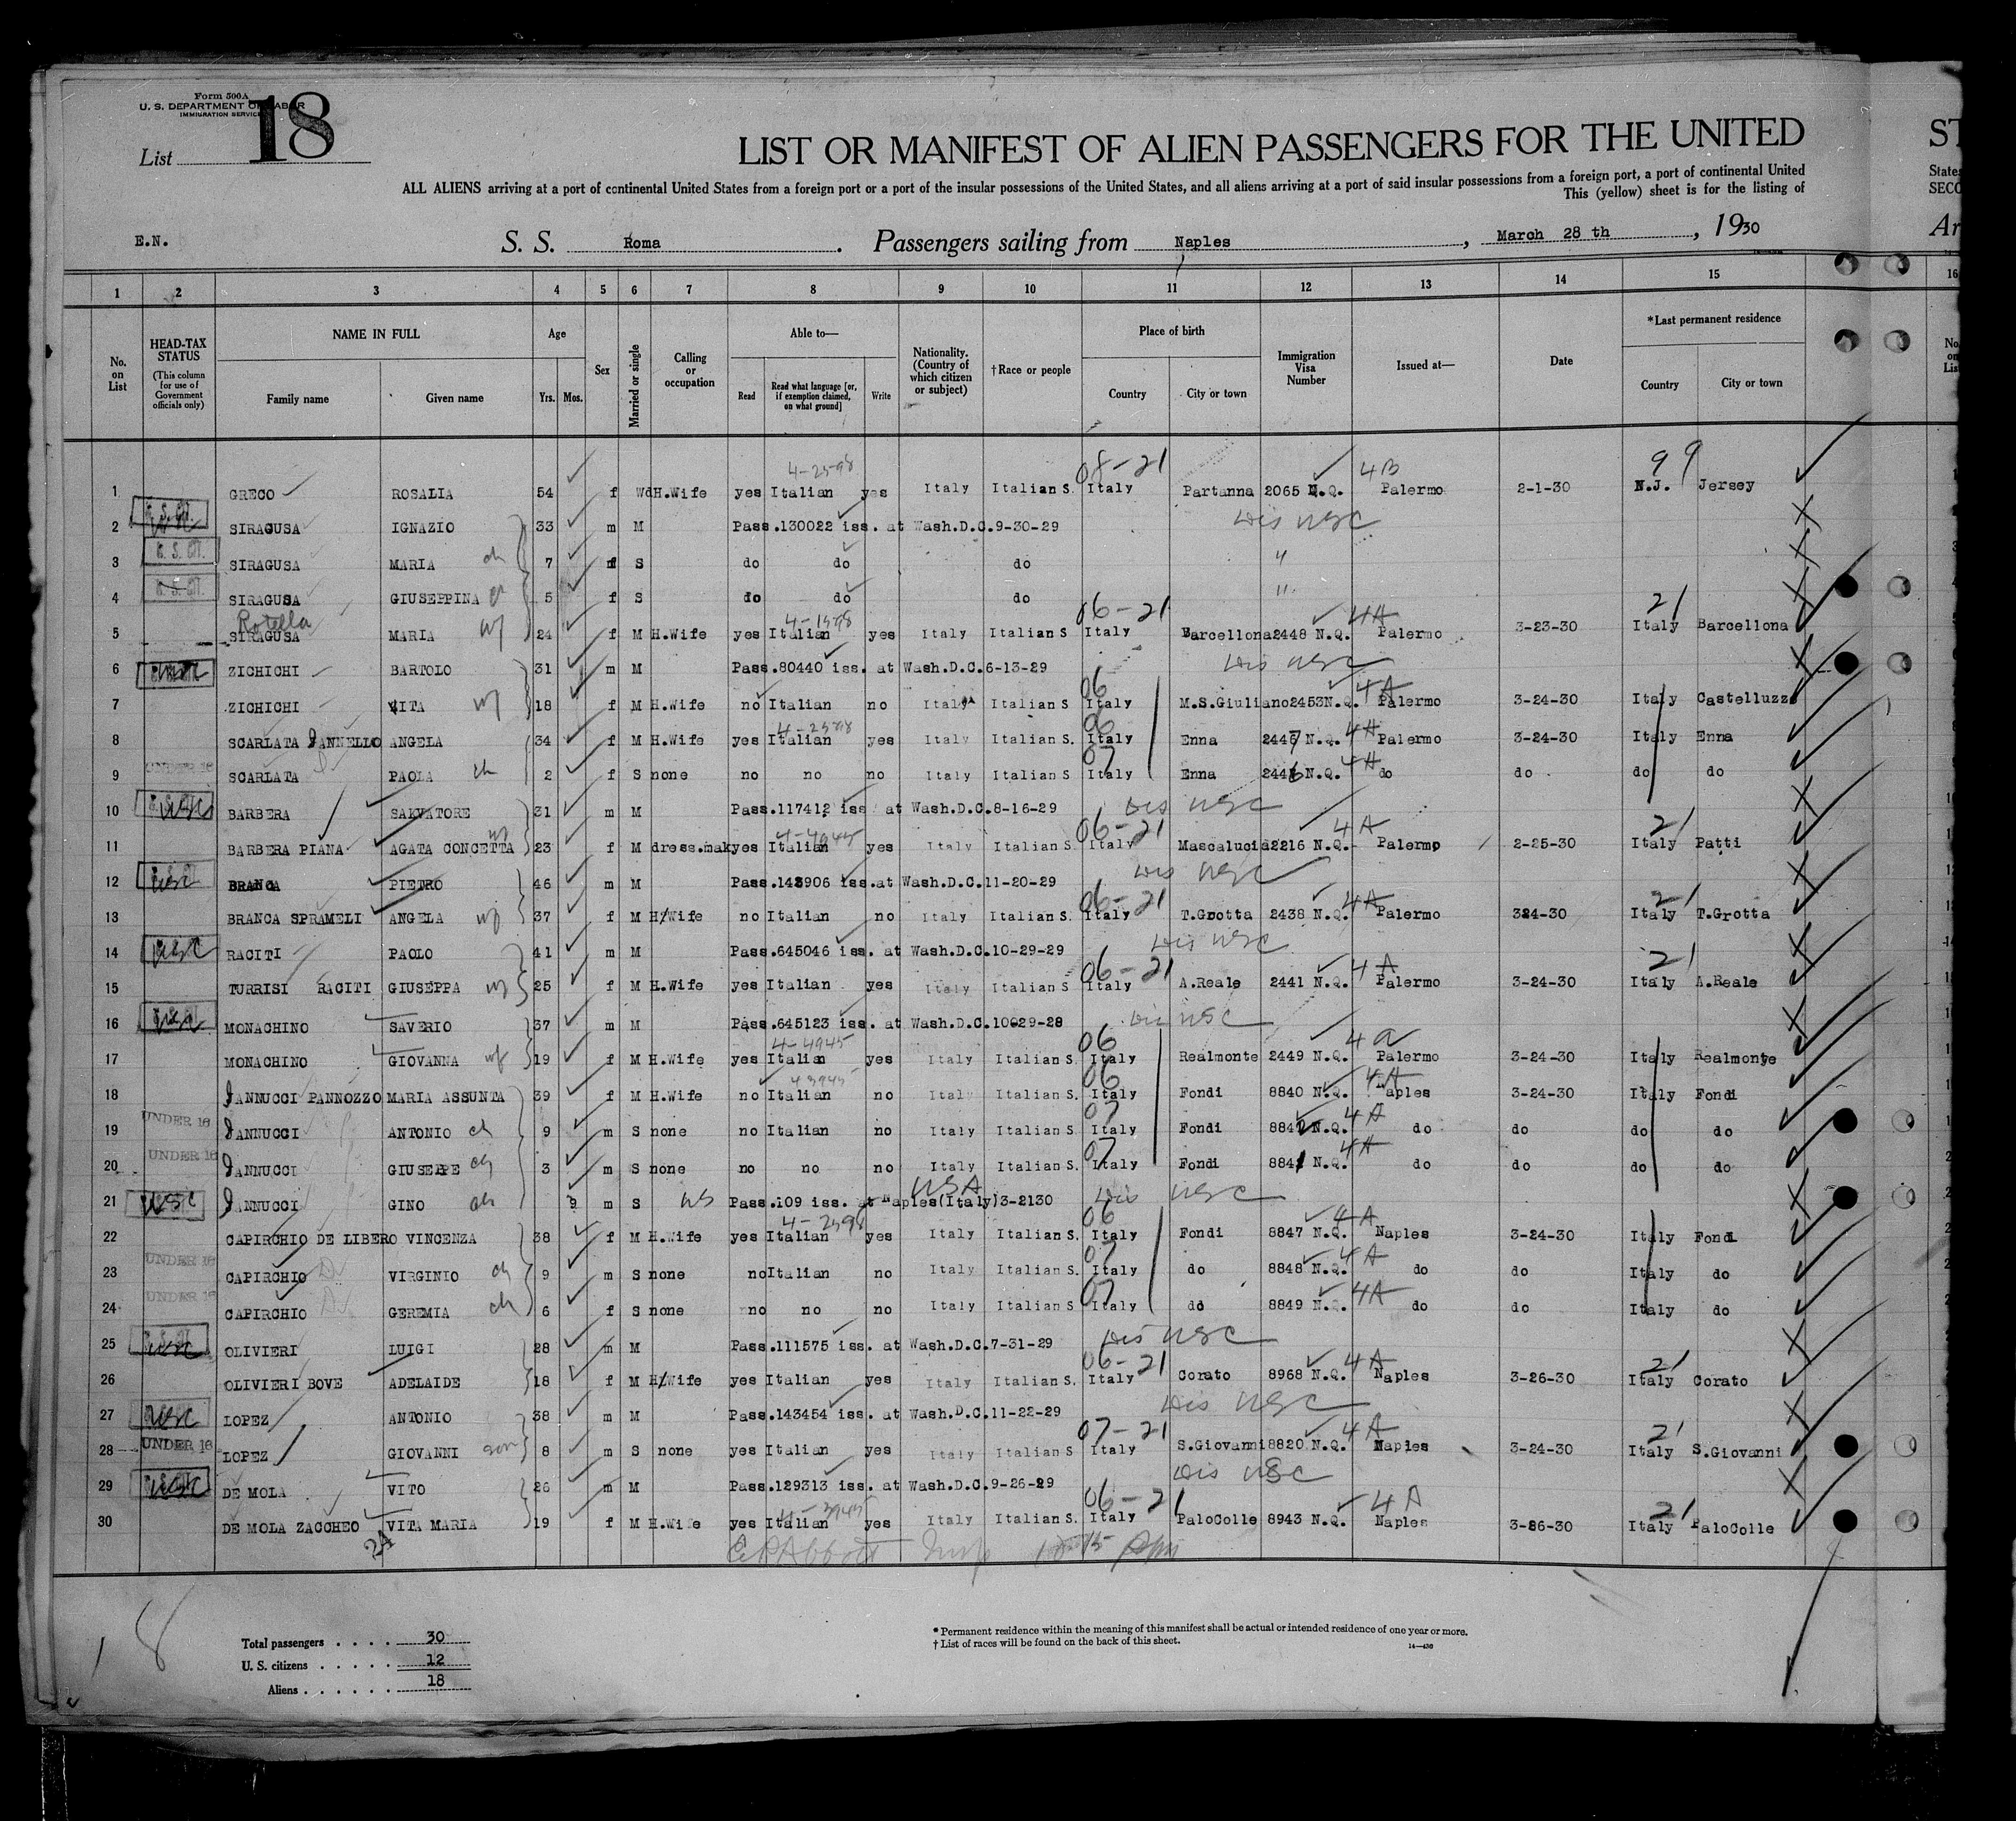 Form 500A
U. S. DEPARTMENT OF LABOR
IMMIGRATION SERVICE
List 18
LIST OR MANIFEST OF ALIEN PASSENGERS FOR THE UNITED
ST
ALL ALIENS arriving at a port of continental United States from a foreign port or a port of the insular possessions of the United States, and all aliens arriving at a port of said insular possessions from a foreign port, a port of continental United
States
This (yellow) sheet is for the listing of
SECO
E.N. S. S. Roma . Passengers sailing from Naples , March 28 th , 1930
Ar
1 2 3 4 5 6 7 8 9 10 11 12 13 14 15 16
No. on List
HEAD-TAX STATUS (This column for use of Government officials only)
NAME IN FULL Family name Given name
Age Yrs. Mos.
Sex
Married or single
Calling or occupation
Able to— Read Read what language [or, if exemption claimed, on what ground] Write
Nationality. (Country of which citizen or subject)
†Race or people
Place of birth Country City or town
Immigration Visa Number
Issued at—
Date
*Last permanent residence Country City or town
4-2598 08-21 4B 99
1 GRECO ROSALIA 54 f Wd H.Wife yes Italian yes Italy Italian S. Italy Partanna 2065 N.Q. Palermo 2-1-30 N.J. Jersey
2 SIRAGUSA IGNAZIO 33 m M Pass.130022 iss. at Wash.D.C.9-30-29 Dis USC
3 SIRAGUSA MARIA ch 7 f S do do do "
4 SIRAGUSA GIUSEPPINA ch 5 f S do do do "
Rotella 06-21 4A 21
5 SIRAGUSA MARIA wf 24 f M H.Wife yes Italian yes Italy Italian S Italy Barcellona 2448 N.Q. Palermo 3-23-30 Italy Barcellona
6 ZICHICHI BARTOLO 31 m M Pass.80440 iss. at Wash.D.C.6-13-29 Dis USC
06 4A
7 ZICHICHI VITA wf 18 f M H.Wife no Italian no Italy Italian S Italy M.S.Giuliano 2453 N.Q. Palermo 3-24-30 Italy Castelluzzo
4-2598 06 4A
8 SCARLATA JANNELLO ANGELA 34 f M H.Wife yes Italian yes Italy Italian S. Italy Enna 2447 N.Q. Palermo 3-24-30 Italy Enna
UNDER 16 07 4A
9 SCARLATA PAOLA ch 2 f S none no no no Italy Italian S Italy Enna 2446 N.Q. do do do do
10 USC BARBERA SALVATORE 31 m M Pass.117412 iss. at Wash.D.C.8-16-29 Dis USC
4-4945 06-21 4A 21
11 BARBERA PIANA AGATA CONCETTA wf 23 f M dress.mak yes Italian yes Italy Italian S. Italy Mascalucia 2216 N.Q. Palermo 2-25-30 Italy Patti
12 USC BRANCA PIETRO 46 m M Pass.148906 iss.at Wash.D.C.11-20-29 Dis USC
06-21 4A 21
13 BRANCA SPRAMELI ANGELA wf 37 f M H/Wife no Italian no Italy Italian S. Italy T.Grotta 2438 N.Q. Palermo 324-30 Italy T.Grotta
14 USC RACITI PAOLO 41 m M Pass.645046 iss. at Wash.D.C.10-29-29 Dis USC
06-21 4A 21
15 TURRISI RACITI GIUSEPPA wf 25 f M H.Wife yes Italian yes Italy Italian S Italy A.Reale 2441 N.Q. Palermo 3-24-30 Italy A.Reale
16 USC MONACHINO SAVERIO 37 m M Pass.645123 iss. at Wash.D.C.10029-28 Dis USC
4-4945 06 4A
17 MONACHINO GIOVANNA wf 19 f M H.Wife yes Italian yes Italy Italian S. Italy Realmonte 2449 N.Q. Palermo 3-24-30 Italy Realmonte
06 4A
18 JANNUCCI PANNOZZO MARIA ASSUNTA 39 f M H.Wife no Italian no Italy Italian S. Italy Fondi 8840 N.Q. Naples 3-24-30 Italy Fondi
UNDER 16 07 4A
19 JANNUCCI ANTONIO ch 9 m S none no Italian no Italy Italian S. Italy Fondi 8842 N.Q. do do do do
UNDER 16 07 4A
20 JANNUCCI GIUSEPPE ch 3 m S none no no no Italy Italian S. Italy Fondi 8841 N.Q. do do do do
USA
21 USC JANNUCCI GINO ch 9 m S US Pass.109 iss. at Naples(Italy)3-2130 Dis USC
4-2598 06 4A
22 CAPIRCHIO DE LIBERO VINCENZA 38 f M H.Wife yes Italian yes Italy Italian S. Italy Fondi 8847 N.Q. Naples 3-24-30 Italy Fondi
UNDER 16 07 4A
23 CAPIRCHIO VIRGINIO ch 9 m S none no Italian no Italy Italian S. Italy do 8848 N.Q. do do Italy do
UNDER 16 07 4A
24 CAPIRCHIO GEREMIA ch 6 f S none no no no Italy Italian S Italy do 8849 N.Q. do do Italy do
25 USC OLIVIERI LUIGI 28 m M Pass.111575 iss. at Wash.D.C.7-31-29 Dis USC
06-21 4A 21
26 OLIVIERI BOVE ADELAIDE 18 f M H/Wife yes Italian yes Italy Italian S. Italy Corato 8968 N.Q. Naples 3-26-30 Italy Corato
27 USC LOPEZ ANTONIO 38 m M Pass.143454 iss. at Wash.D.C.11-22-29 Dis USC
UNDER 16 07-21 4A 21
28 LOPEZ GIOVANNI son 8 m S none yes Italian yes Italy Italian S Italy S.Giovanni 8820 N.Q. Naples 3-24-30 Italy S.Giovanni
29 USC DE MOLA VITO 26 m M Pass.129313 iss. at Wash.D.C.9-26-29 Dis USC
4-3945 06-21 4A 21
30 DE MOLA ZACCHEO VITA MARIA 19 f M H.Wife yes Italian yes Italy Italian S. Italy PaloColle 8943 N.Q. Naples 3-26-30 Italy PaloColle
24
18
Total passengers . . . . 30
U. S. citizens . . . . . 12
Aliens . . . . . . 18
* Permanent residence within the meaning of this manifest shall be actual or intended residence of one year or more.
† List of races will be found on the back of this sheet.
14—436